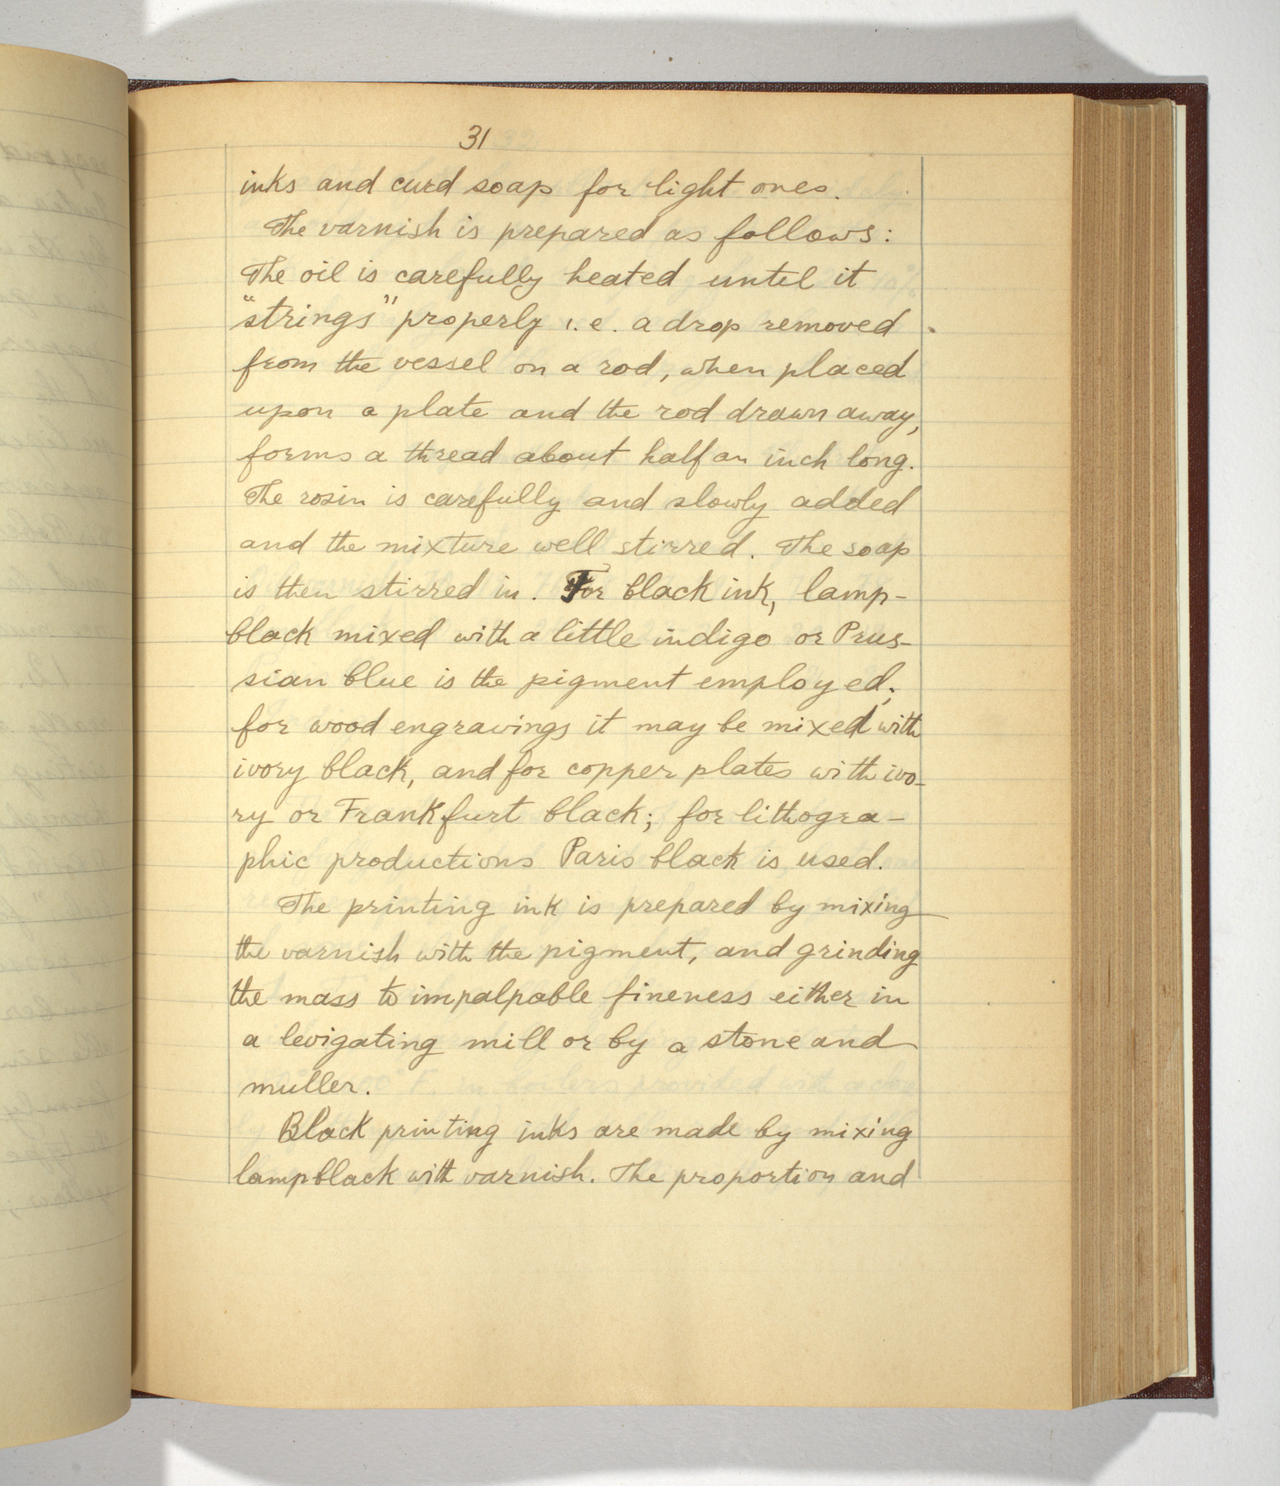 31
inks and curd soap for light ones.
The varnish is prepared as follows:
The oil is carefully heated until it
"strings" properly i.e. a drop removed
from the vessel on a rod, when placed
upon a plate and the rod drawn away,
forms a thread about half an inch long.
The rosin is carefully and slowly added
and the mixture well stirred. The soap
is then stirred in. For black ink, lamp-
black mixed with a little indigo or Prus-
sian blue is the pigment employed;
for wood engravings it may be mixed with
ivory black, and for copper plates with ivo-
ry or Frankfurt black; for lithogra-
phic productions Paris black is used.
The printing ink is prepared by mixing
the varnish with the pigment, and grinding
the mass to impalpable fineness either in
a levigating mill or by a stone and
muller.
Black printing inks are made by mixing
lampblack with varnish. The proportion and